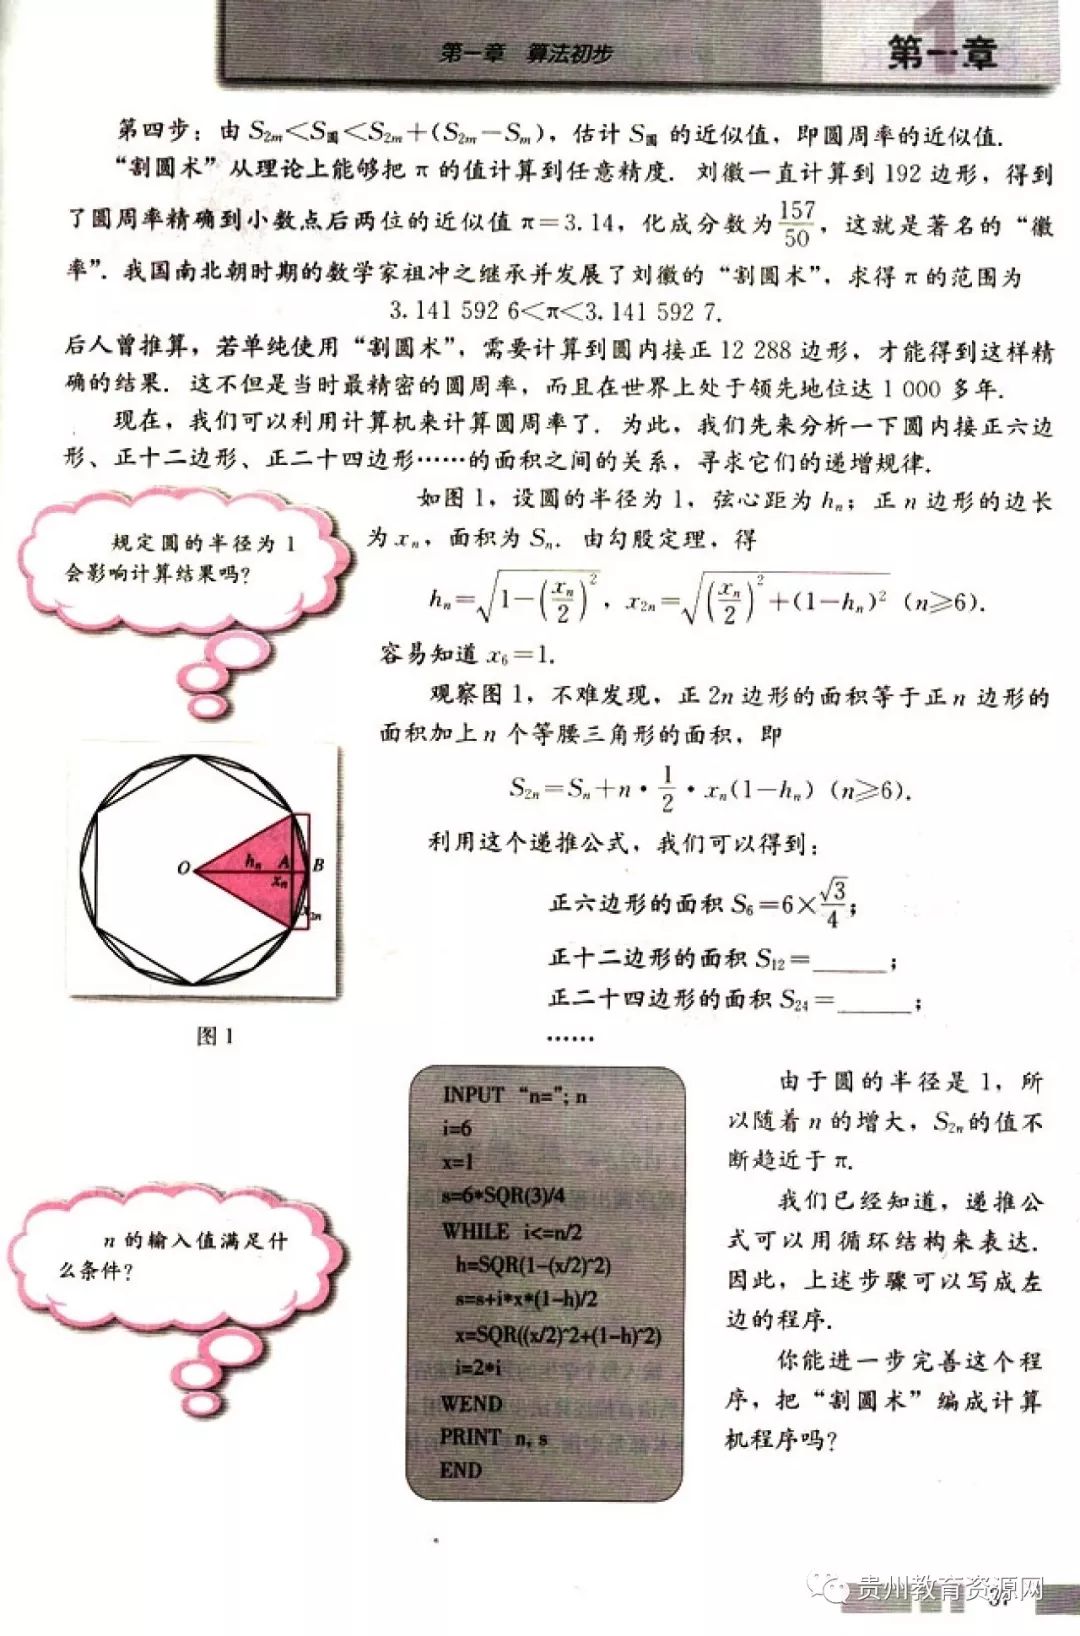 第一章 算法初步
第一章
1
第四步：由 S₂ₘ<S圆<S₂ₘ+(S₂ₘ−Sₘ)，估计 S圆 的近似值，即圆周率的近似值．
“割圆术”从理论上能够把 π 的值计算到任意精度．刘徽一直计算到 192 边形，得到
了圆周率精确到小数点后两位的近似值 π=3.14，化成分数为 157/50，这就是著名的“徽
率”．我国南北朝时期的数学家祖冲之继承并发展了刘徽的“割圆术”，求得 π 的范围为
3.141 592 6<π<3.141 592 7.
后人曾推算，若单纯使用“割圆术”，需要计算到圆内接正 12 288 边形，才能得到这样精
确的结果．这不但是当时最精密的圆周率，而且在世界上处于领先地位达 1 000 多年．
现在，我们可以利用计算机来计算圆周率了．为此，我们先来分析一下圆内接正六边
形、正十二边形、正二十四边形……的面积之间的关系，寻求它们的递增规律．
如图 1，设圆的半径为 1，弦心距为 hₙ；正 n 边形的边长
为 xₙ，面积为 Sₙ．由勾股定理，得
hₙ=√(1−(xₙ/2)²)，x₂ₙ=√((xₙ/2)²+(1−hₙ)²) (n≥6).
容易知道 x₆=1.
观察图 1，不难发现，正 2n 边形的面积等于正 n 边形的
面积加上 n 个等腰三角形的面积，即
S₂ₙ=Sₙ+n·1/2·xₙ(1−hₙ) (n≥6).
利用这个递推公式，我们可以得到：
正六边形的面积 S₆=6×√3/4；
正十二边形的面积 S₁₂=______；
正二十四边形的面积 S₂₄=______；
……
规定圆的半径为 1
会影响计算结果吗？
O hₙ A B
xₙ
x₂ₙ
图 1
n 的输入值满足什
么条件？
INPUT “n=”; n
i=6
x=1
s=6*SQR(3)/4
WHILE i<=n/2
h=SQR(1−(x/2)^2)
s=s+i*x*(1−h)/2
x=SQR((x/2)^2+(1−h)^2)
i=2*i
WEND
PRINT n, s
END
由于圆的半径是 1，所
以随着 n 的增大，S₂ₙ的值不
断趋近于 π.
我们已经知道，递推公
式可以用循环结构来表达．
因此，上述步骤可以写成左
边的程序．
你能进一步完善这个程
序，把“割圆术”编成计算
机程序吗？
贵州教育资源网